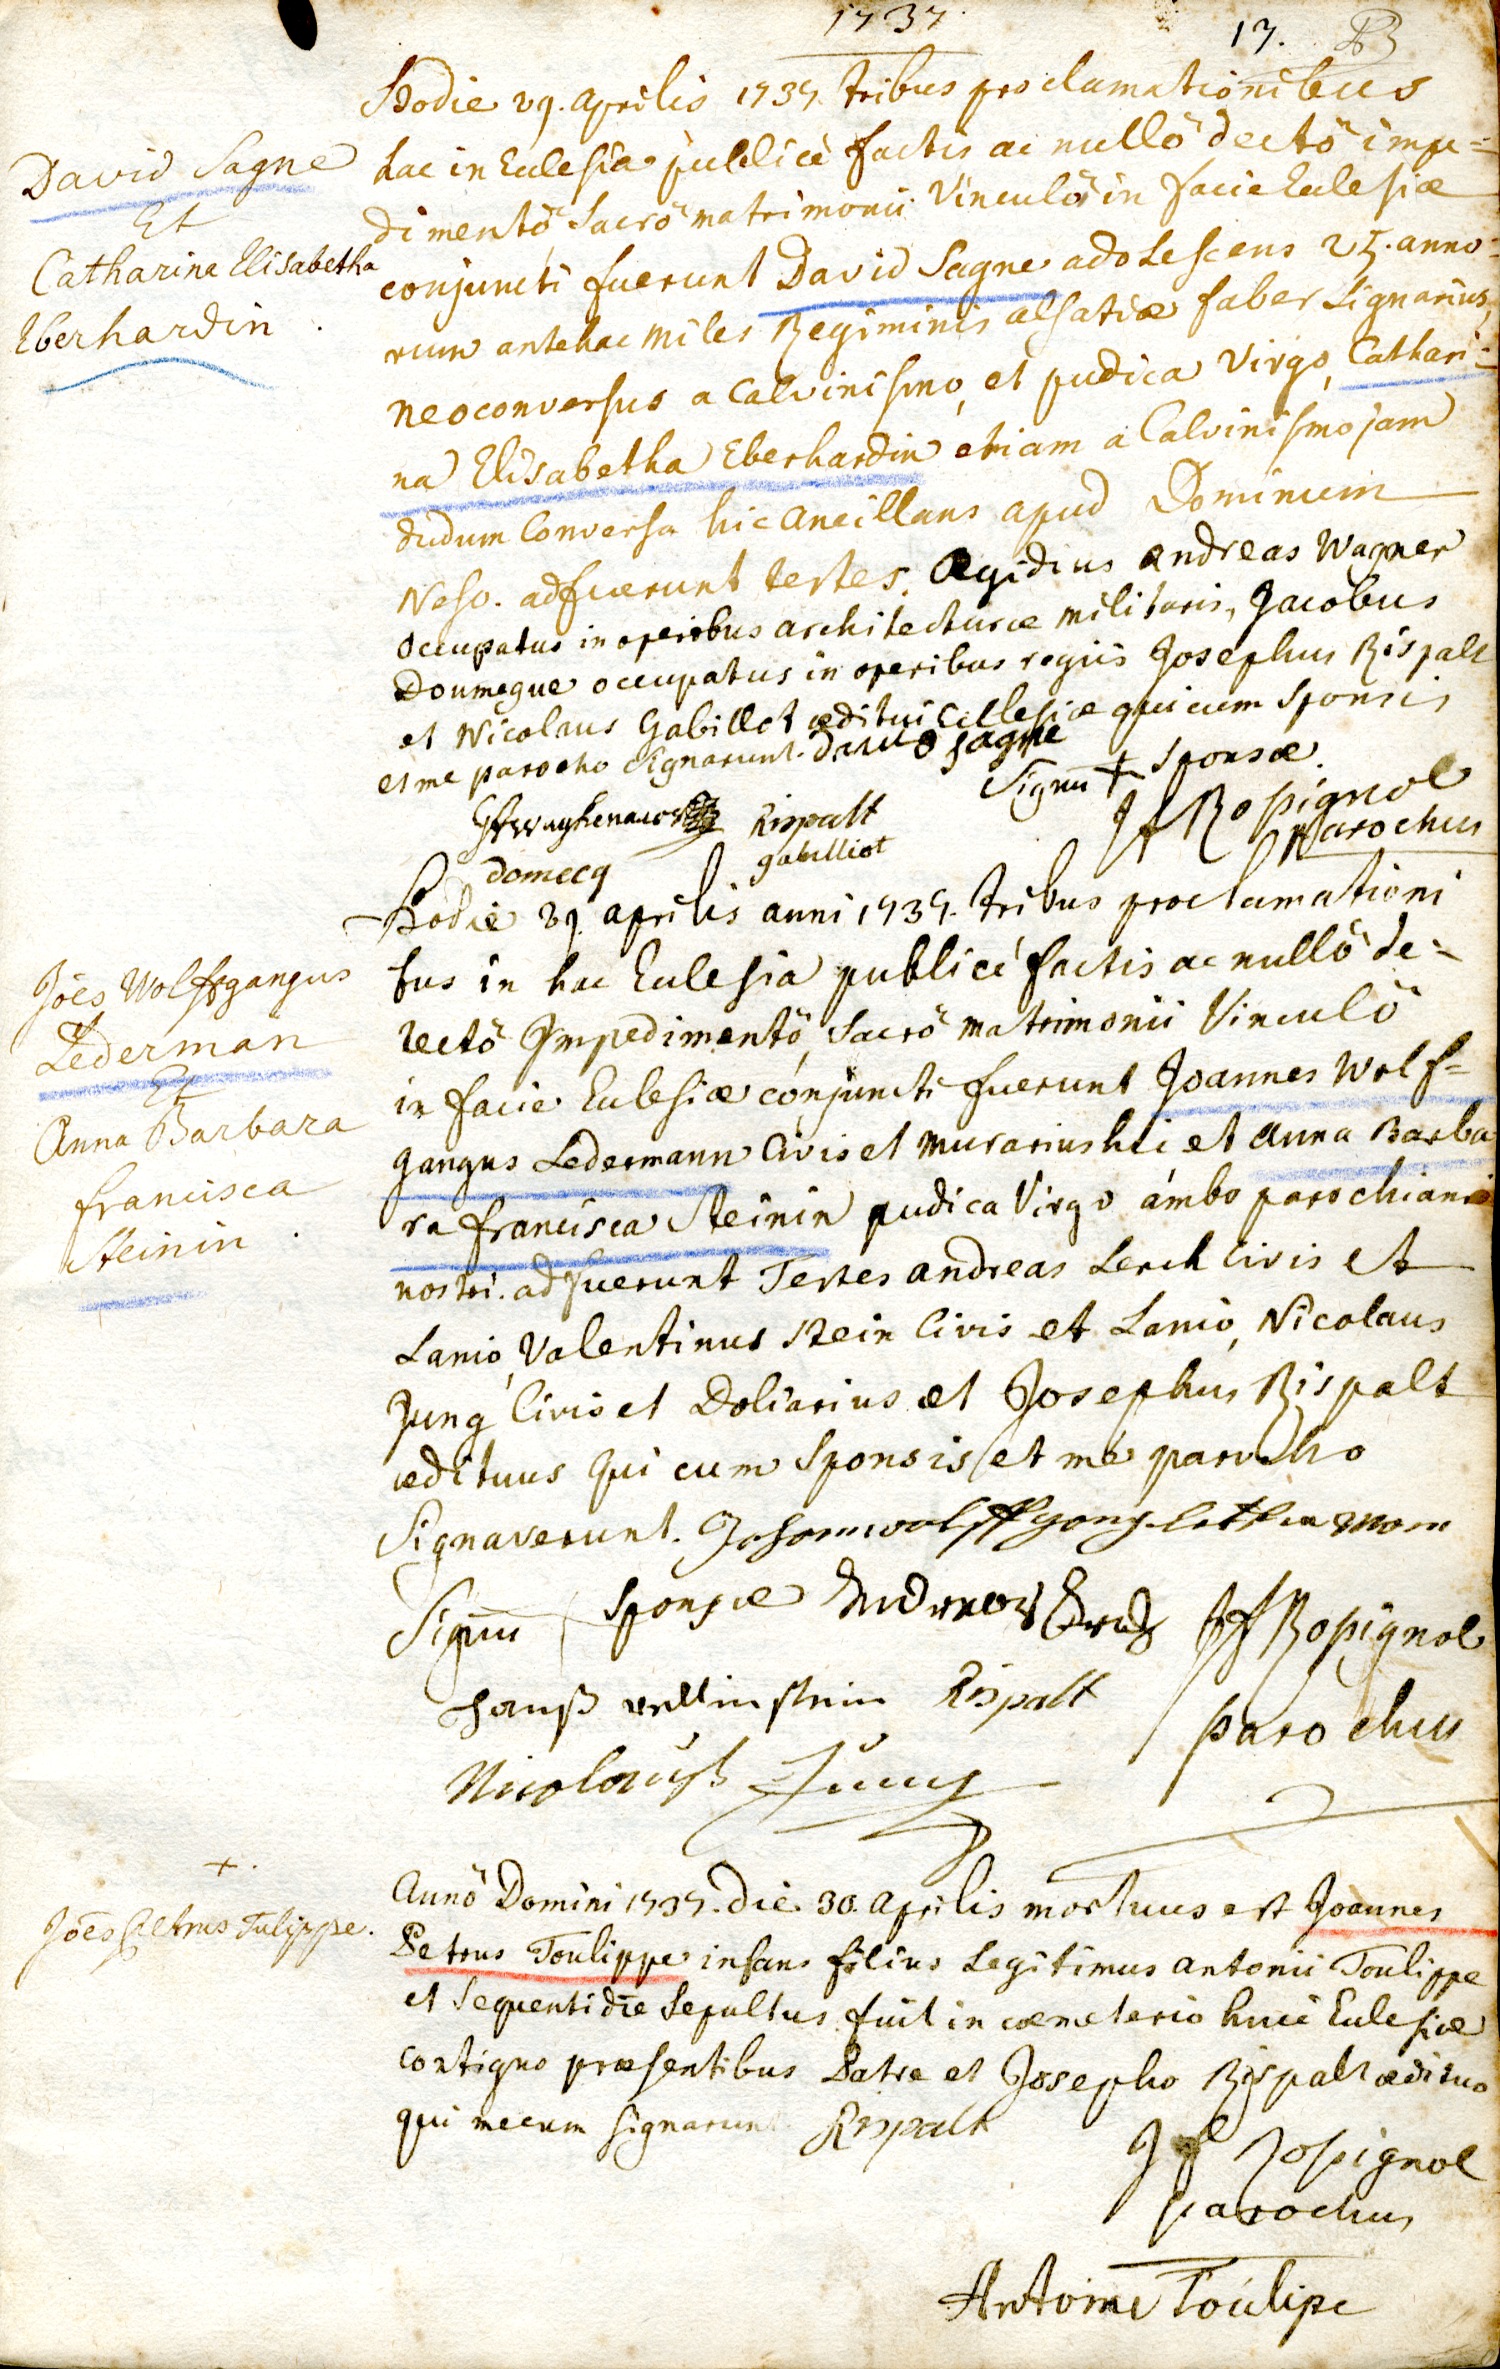 1737.
17.
David Sagne
Et
Catharina Elisabetha
Eberhardin.
Hodie 29. aprilis 1737. tribus proclamationibus
hac in Eclesia publicè factis ac nullô dectô impe=
dimentô Sacrô matrimonii Vinculô in facie Eclesiæ
conjuncti fuerunt David Sagne adolescens 25. anno=
rum antehac miles Regiminis alsatiæ faber Lignarius,
neoconversus a Calvinismo, et pudica Virgo, Cathari=
na Elisabetha Eberhardin etiam a Calvinismo jam
dudum Conversa hic ancillans apud Dominum
Neso. adfuerunt testes. Ægidius andreas Wagner
occupatus in operibus architecturæ militaris, Jacobus
Doumegue occupatus in operibus regiis Josephus Rispalt
et Nicolaus Gabillot æditui Ecclesiæ qui cum Sponsis
et me parocho signarunt. David Sagne
Signū + Sponsæ.
Rispalt
domecq
gabilliot
Jf Rosignol
parochus
Joēs Wolffgangus
Lederman
Et
Anna Barbara
francisca
Steinin.
Hodie 29. aprilis anni 1737. tribus proclamationi
bus in hac Eclesia publicè factis ac nullô de=
tectô Impedimentô, Sacrô matrimonii Vinculô
in facie Eclesiæ conjuncti fuerunt Joannes Wolf=
gangus Ledermann Civis et murarius hic et anna Barba
ra francisca Steinin pudica Virgo ambo parochiani
nostri. adfuerunt Testes andreas Lerch Civis et
Lanio, Valentinus Stein Civis et Lanio, Nicolaus
Jung Civis et Doliarius et Josephus Rispalt
ædituus qui cum Sponsis et me parocho
Signaverunt. Johann wolffgang letterman
Signū sponsæ Andreas Lerch Jf Rosignol
hanß velltin stein Rispalt parochus
Nicolauß Jung
+.
Joēs Petrus Tulippe.
Annô Domini 1737. die 30. aprilis mortuus est Joannes
Petrus Toulippe infans filius Legitimus antonii Toulippe
et sequenti die Sepultus fuit in cœmeterio huic Eclesiæ
contiguo præsentibus Patre et Josepho Rispalt ædituo
qui mecum signarunt Rispalt
Jf Rosignol
parochus
Antoine Toulipe